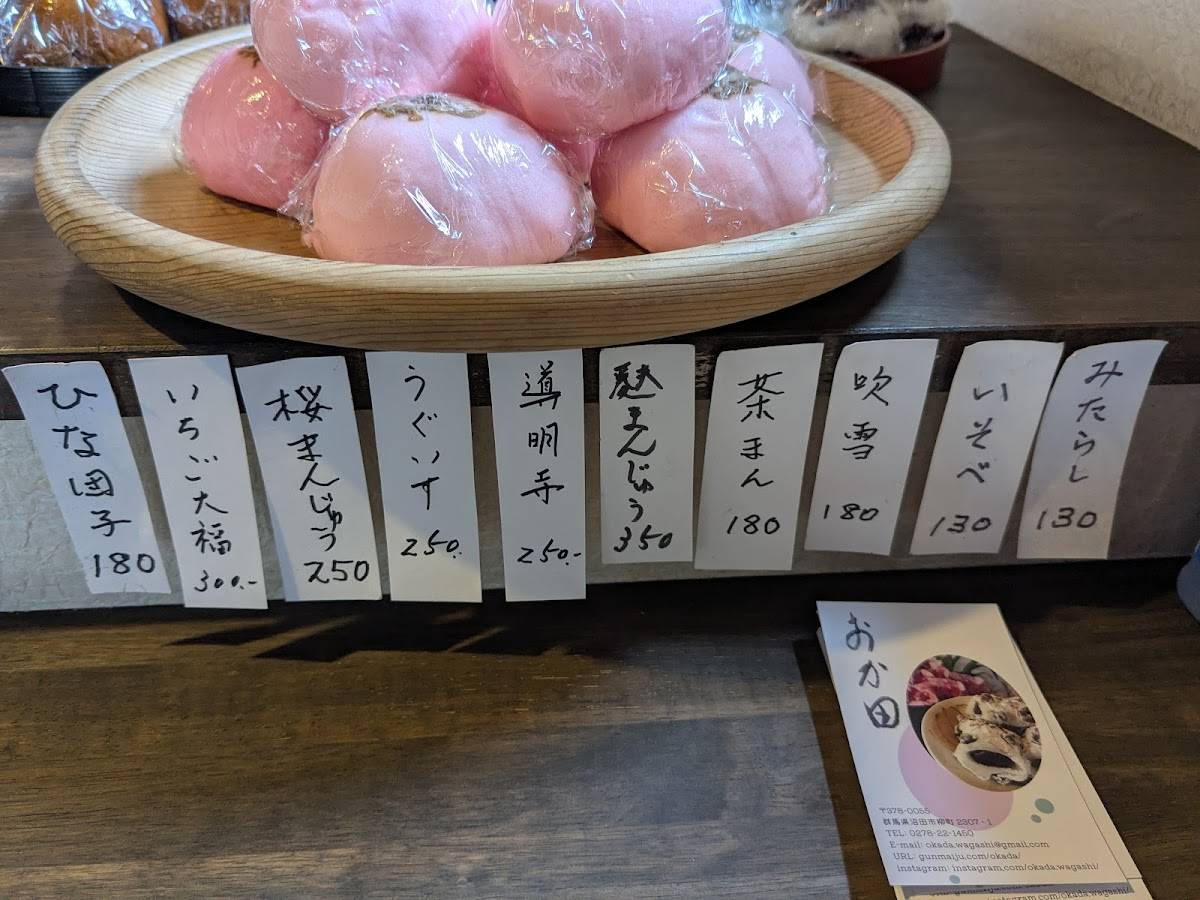 ひな団子
180
いちご大福
300.-
桜まんじゅう
250
うぐいす
250.
道明寺
250.-
麩まんじゅう
350
茶まん
180
吹雪
180
いそべ
130
みたらし
130
おか田
〒378-0055
群馬県沼田市柳町 2307-1
TEL: 0278-22-1450
E-mail: okada.wagashi@gmail.com
URL: gunmaiju.com/okada/
instagram: instagram.com/okada.wagashi/
instagram.com/okada.wagashi/